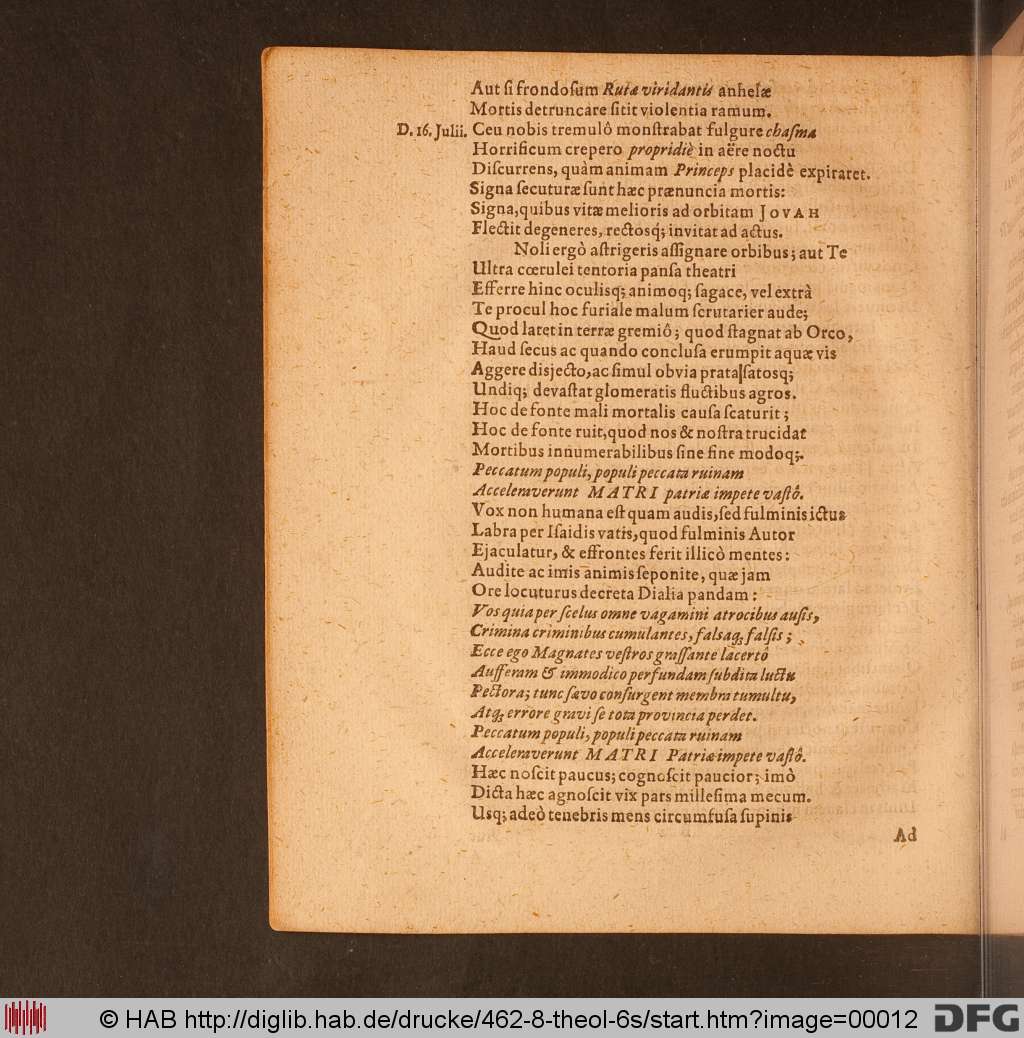 Aut ſi frondoſum Rutæ viridantis anhelæ
Mortis detruncare ſitit violentia ramum.
D. 16. Julii. Ceu nobis tremulô monſtrabat fulgure chaſma
Horrificum crepero propridiè in aëre noctu
Diſcurrens, quàm animam Princeps placidè expiraret.
Signa ſecuturæ ſunt hæc prænuncia mortis:
Signa, quibus vitæ melioris ad orbitam JOVAH
Flectit degeneres, rectosq; invitat ad actus.
Noli ergò aſtrigeris aſſignare orbibus; aut Te
Ultra cœrulei tentoria panſa theatri
Efferre hinc oculisq; animoq; ſagace, vel extrà
Te procul hoc furiale malum ſcrutarier aude;
Quod latet in terræ gremiô; quod ſtagnat ab Orco,
Haud ſecus ac quando concluſa erumpit aquæ vis
Aggere disjecto, ac ſimul obvia prata|ſatosq;
Undiq; devaſtat glomeratis fluctibus agros.
Hoc de fonte mali mortalis cauſa ſcaturit;
Hoc de fonte ruit, quod nos & noſtra trucidat
Mortibus innumerabilibus ſine fine modoq;.
Peccatum populi, populi peccata ruinam
Acceleraverunt MATRI patriæ impete vaſtô.
Vox non humana eſt quam audis, ſed fulminis ictus
Labra per Iſaidis vatis, quod fulminis Autor
Ejaculatur, & effrontes ferit illicò mentes:
Audite ac imis animis ſeponite, quæ jam
Ore locuturus decreta Dialia pandam:
Vos quia per ſcelus omne vagamini atrocibus auſis,
Crimina criminibus cumulantes, falsaq; falſis;
Ecce ego Magnates veſtros graſſante lacertô
Aufferam & immodico perfundam ſubdita luctu
Pectora; tunc ſævo conſurgent membra tumultu,
Atq; errore gravi ſe tota provincia perdet.
Peccatum populi, populi peccata ruinam
Acceleraverunt MATRI Patriæ impete vaſtô.
Hæc noſcit paucus; cognoſcit paucior; imò
Dicta hæc agnoſcit vix pars milleſima mecum.
Usq; adeò tenebris mens circumfuſa ſupinis
Ad
© HAB http://diglib.hab.de/drucke/462-8-theol-6s/start.htm?image=00012
DFG